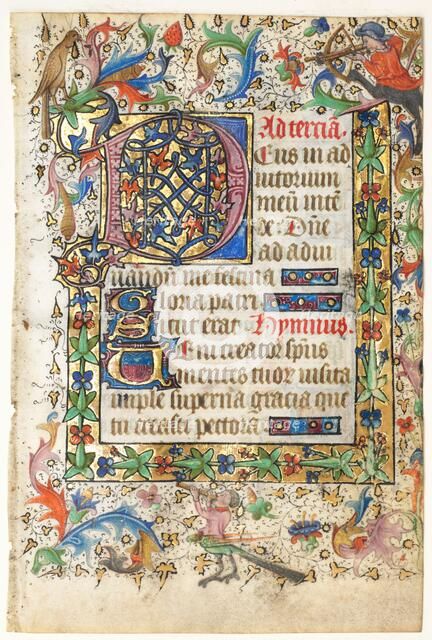 Ad terciā.
Deus in ad
iutorium
meū inte
x· Dn̄e
ad adiu
uandū me festina
Gloria patri
Sicut erat Hymnus.
Veni creator sp̄us
mentes tuor̄ visita
imple superna gracia que
tu creasti pectora